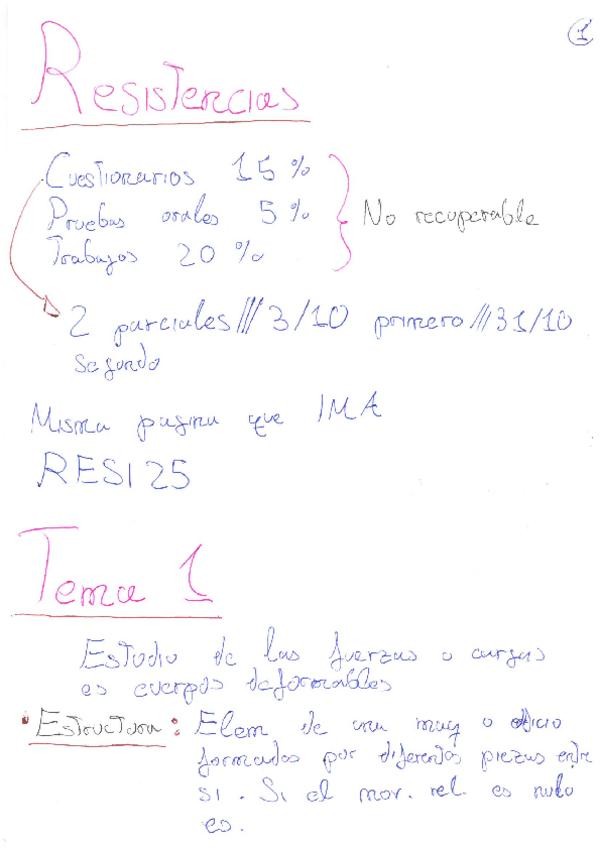 1
Resistencias
Cuestionarios 15 %
Pruebas orales 5 %
Trabajos 20 %
No recuperable
2 parciales /// 3/10 primero /// 31/10
segundo
Misma pagina que IMA
RESI25
Tema 1
Estudio de las fuerzas o cargas
es cuerpos deformables
• Estructura: Elem de una maq o
formados por diferentes piezas entre
si. Si el mov. rel. es nulo
es.